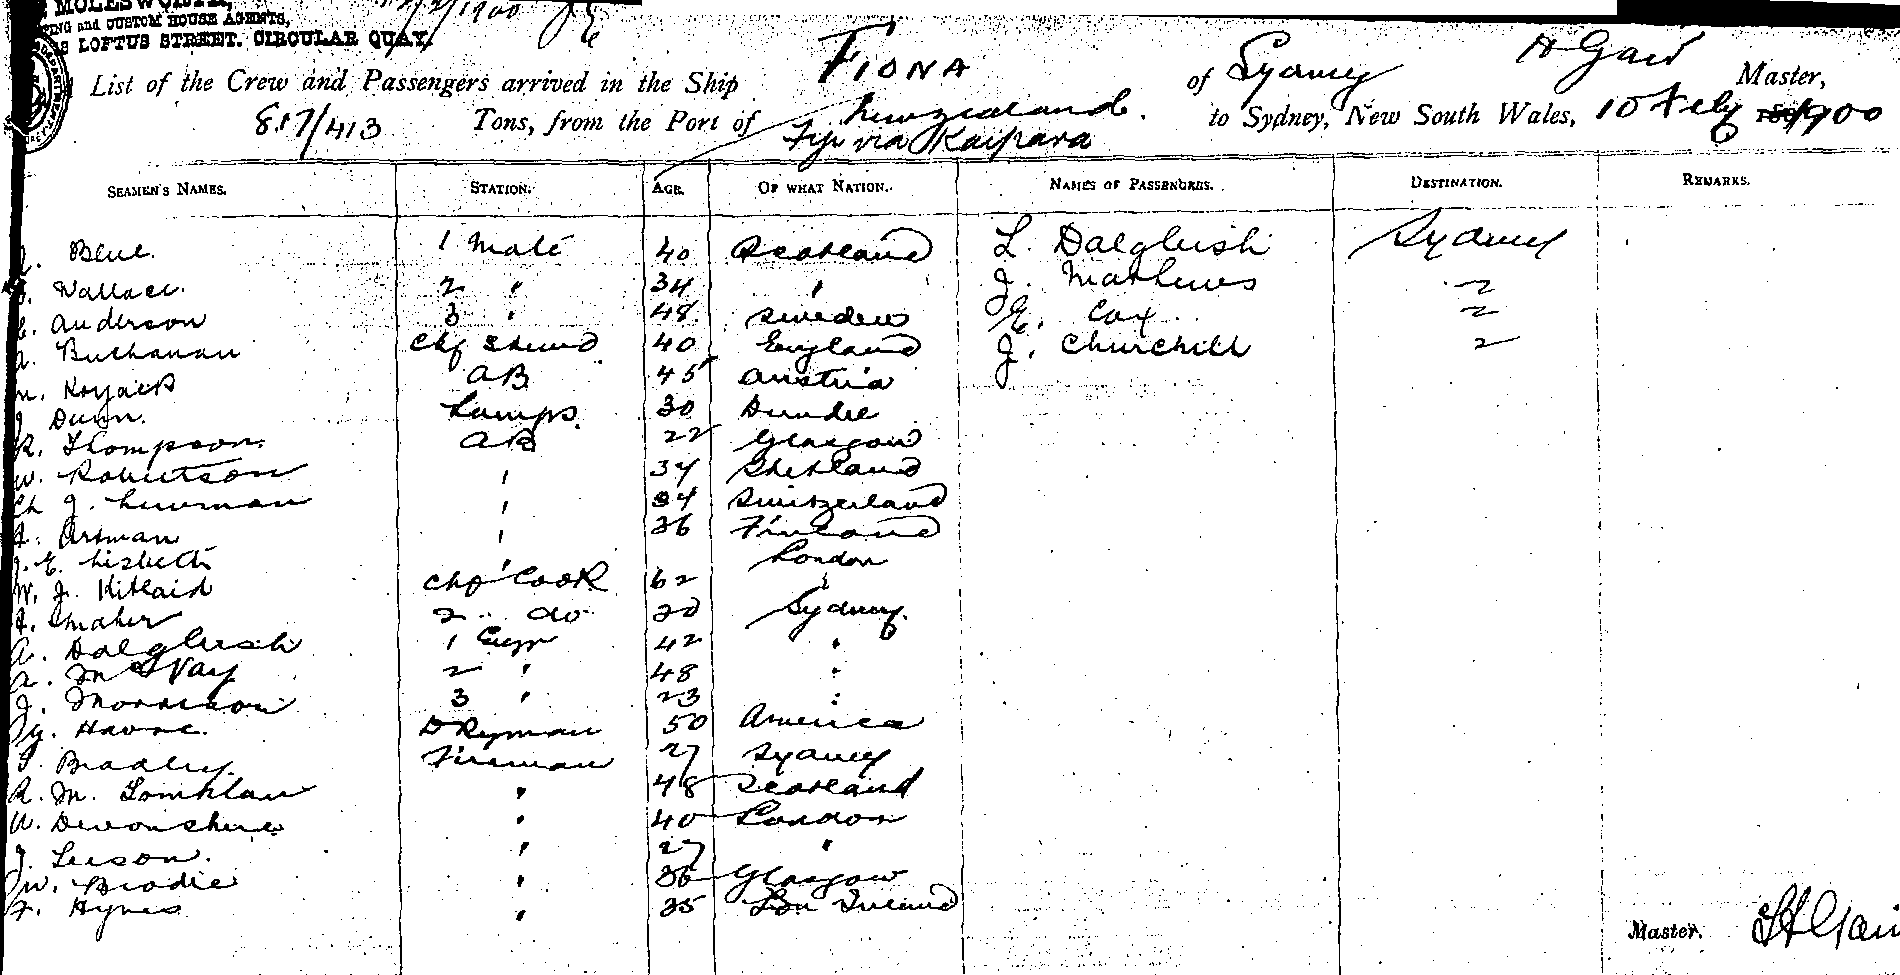 MOLESWORTH,
ING and CUSTOM HOUSE AGENTS,
LOFTUS STREET. CIRCULAR QUAY.
/2/1900
List of the Crew and Passengers arrived in the Ship FIONA of Sydney H Gair Master,
817/413 Tons, from the Port of Newzealand. to Sydney, New South Wales, 10 Feby 1900
Fiji via Kaipara
SEAMEN'S NAMES. STATION. AGE. OF WHAT NATION. NAMES OF PASSENGERS. DESTINATION. REMARKS.
Blue. 1 Mate 40 Scotland L. Dalgleish Sydney
Wallace. 2 " 34 " J. Mathews "
Anderson 3 " 48 Sweden E. Cox "
Buchanan Chf Stewd 40 England J. Churchill "
AB 45 Austria
J Dunn. Lamps. 30 Dundee
R. Thompson. AB 22 Glasgow
W. Robertson " 34 Shetland
Ch J. Newman " 34 Switzerland
Artman " 36 Finland
J. E. Lisbeth " London
W. J. Kitlaid Chf Cook 62 "
Smaher 2 " do 20 Sydney.
A. Dalgleish 1 Engr 42 "
McVay 2 " 48 "
J. Morrison 3 " 23 "
Havre. DKyman 50 America
Bradley. Fireman 27 Sydney
R. M. " 48 Scotland
W. Devonshire " 40 London
J. Leeson. " 27 "
W. Brodie " 36 Glasgow
F. Hynes " 35 Ireland
Master. H Gair